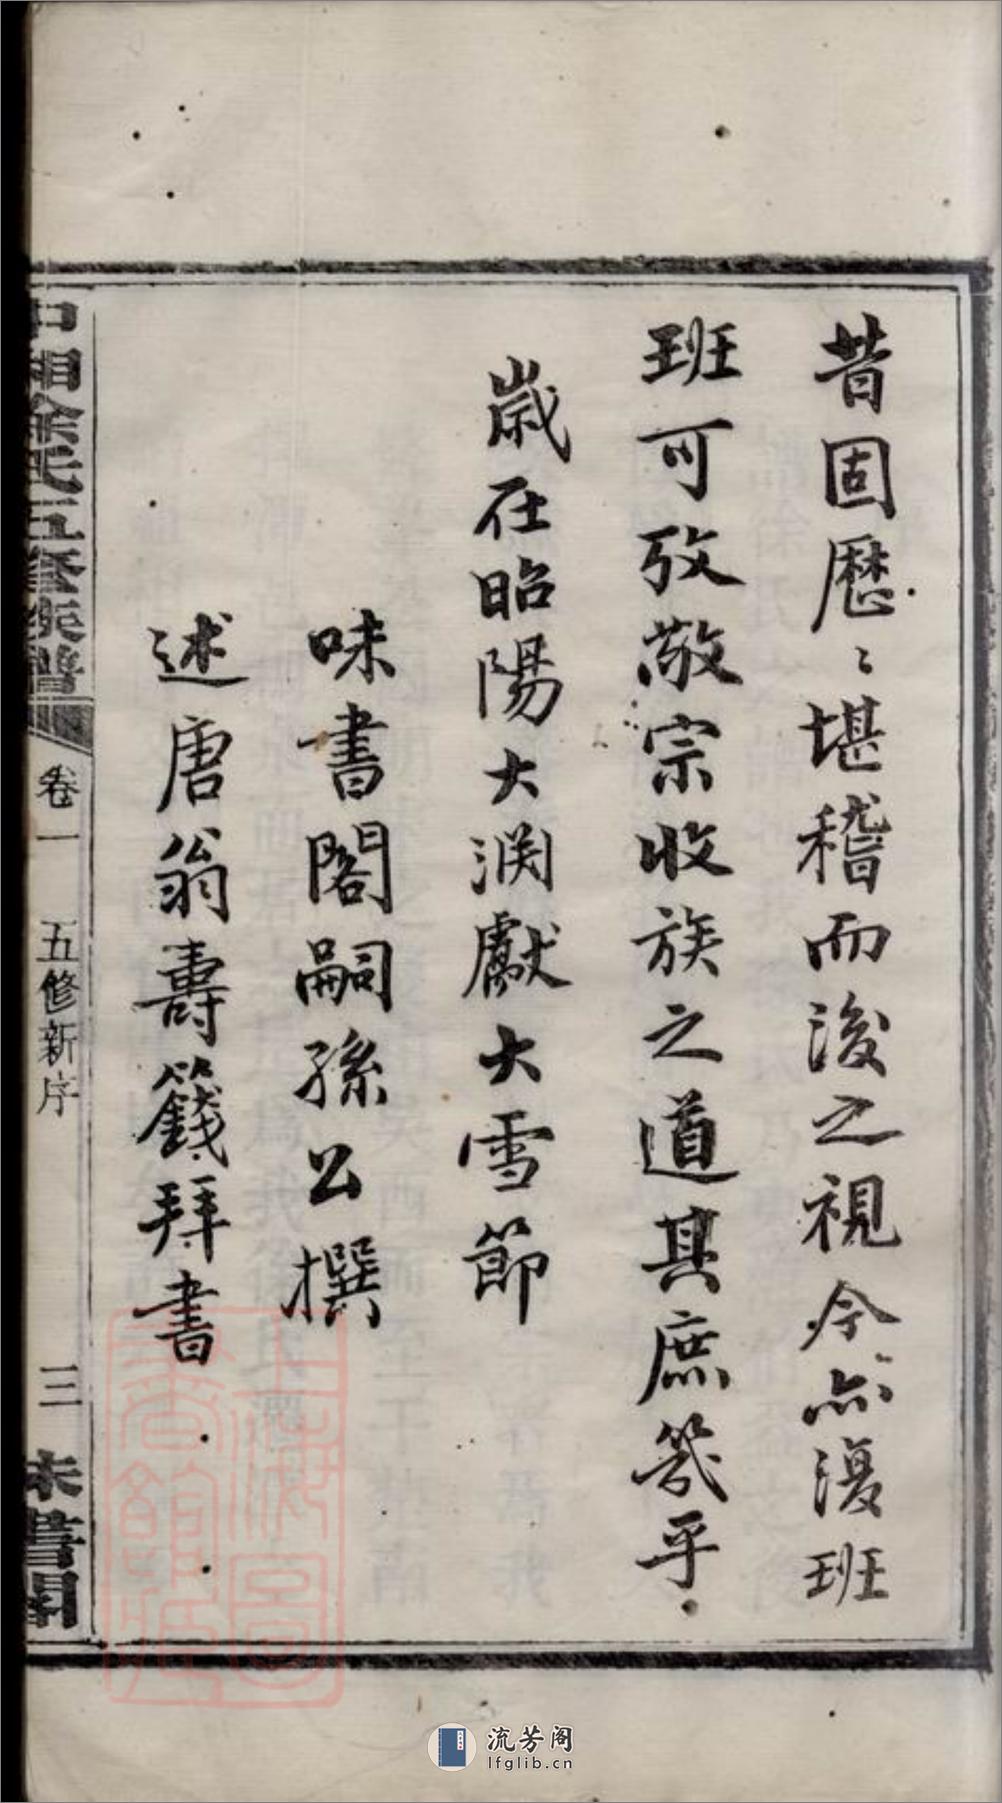 昔固歷〻堪稽而後之視今亦復班
班可攷敬宗收族之道其庶幾乎
歲在昭陽大淵獻大雪節
味書閣嗣孫公撰
述唐翁壽籛拜書
中湘徐氏五修族譜
卷一
五修新序
三
味書閣
上海圖書館藏
流芳阁
lfglib.cn